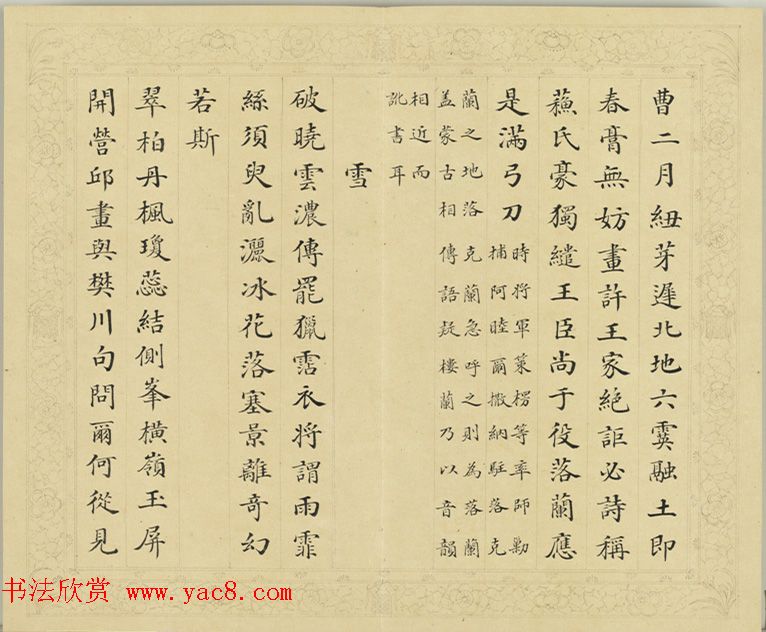 曹二月紐芽遲北地六霙融土即
春膏無妨畫許王家絶詎必詩稱
蘓氏豪獨繾王臣尚于役落蘭應
是滿弓刀
時將軍策楞等率師勦
捕阿睦爾撒納駐落克
蘭之地落克蘭急呼之則為落蘭
盖蒙古相傳語疑樓蘭乃以音韻
相近而
訛書耳
雪
破曉雲濃傳罷獵霑衣將謂雨霏
絲須臾亂灑冰花落塞景離奇幻
若斯
翠柏丹楓瓊蕊結側峯橫嶺玉屏
開營邱畫與樊川句問爾何從見
书法欣赏 www.yac8.com